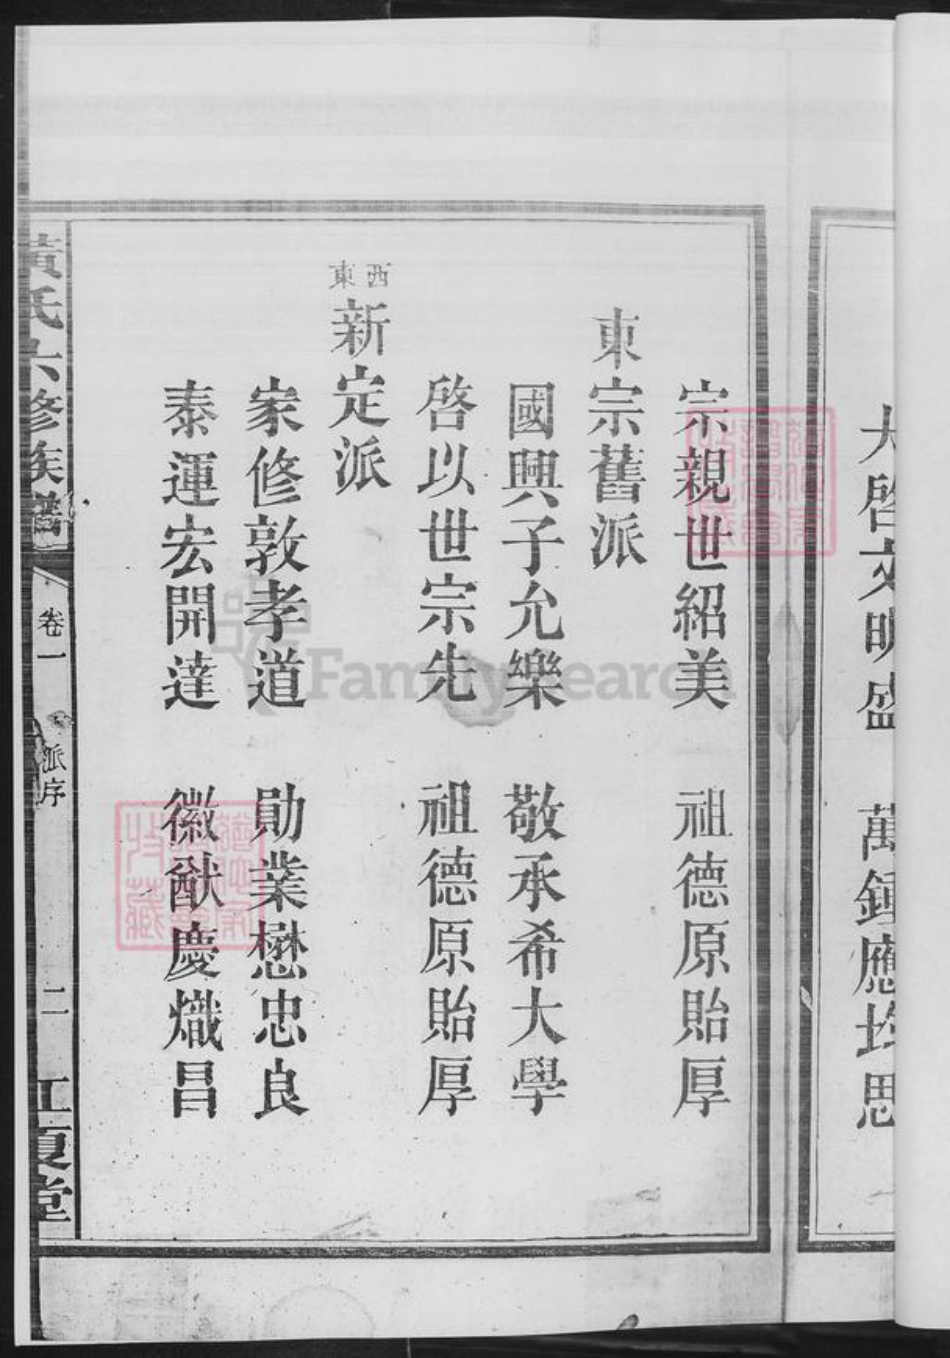 大啓文明盛 萬鍾應均思
宗親世紹美 祖德原貽厚
東宗舊派
國興子允樂 敬承希大學
啓以世宗先 祖德原貽厚
西東新定派
家修敦孝道 勛業懋忠良
泰運宏開達 徽猷慶熾昌
黃氏六修族譜 卷一 派序 二 江夏堂
FamilySearch